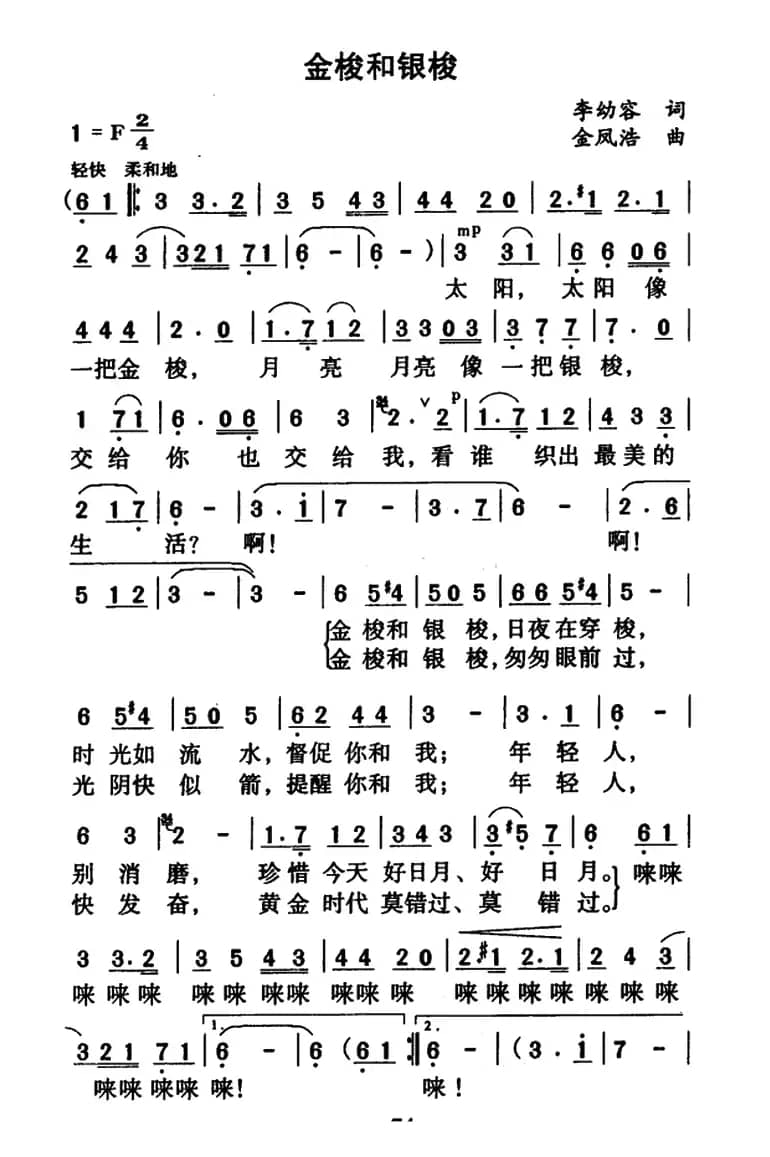 金梭和银梭
李幼容 词
1 = F 2/4
金凤浩 曲
轻快 柔和地
(6 1 |: 3 3·2 | 3 5 4 3 | 4 4 2 0 | 2·#1 2·1 |
2 4 3 | 3 2 1 7 1 | 6 - | 6 - ) | 3 3 1 | 6 6 0 6 |
mp
太阳, 太阳 像
4 4 4 | 2 · 0 | 1·7 1 2 | 3 3 0 3 | 3 7 7 | 7 · 0 |
一把金 梭, 月 亮 月亮 像 一把银 梭,
1 7 1 | 6 · 0 6 | 6 3 | 2 · ∨ 2 | 1·7 1 2 | 4 3 3 |
p
交给 你 也 交 给 我, 看 谁 织出 最美的
2 1 7 | 6 - | 3 · i | 7 - | 3 · 7 | 6 - | 2 · 6 |
生 活? 啊! 啊!
5 1 2 | 3 - | 3 - | 6 5 #4 | 5 0 5 | 6 6 5 #4 | 5 - |
金 梭和 银 梭, 日夜在穿 梭,
金 梭和 银 梭, 匆匆眼前 过,
6 5 #4 | 5 0 5 | 6 2 4 4 | 3 - | 3 · 1 | 6 - |
时 光如 流 水, 督促 你和 我; 年 轻 人,
光 阴快 似 箭, 提醒 你和 我; 年 轻 人,
6 3 | 2 - | 1·7 1 2 | 3 4 3 | 3 #5 7 | 6 6 1 |
别 消 磨, 珍惜 今天 好日月、 好 日 月。 唻唻
快 发 奋, 黄金 时代 莫错过、 莫 错 过。
3 3·2 | 3 5 4 3 | 4 4 2 0 | 2 #1 2·1 | 2 4 3 |
唻 唻唻 唻 唻 唻唻 唻唻 唻 唻 唻 唻 唻 唻 唻 唻
3 2 1 7 1 | 6 - | 6 (6 1 :| 6 - | (3 · i | 7 - |
1. 2.
唻唻 唻唻 唻! 唻!